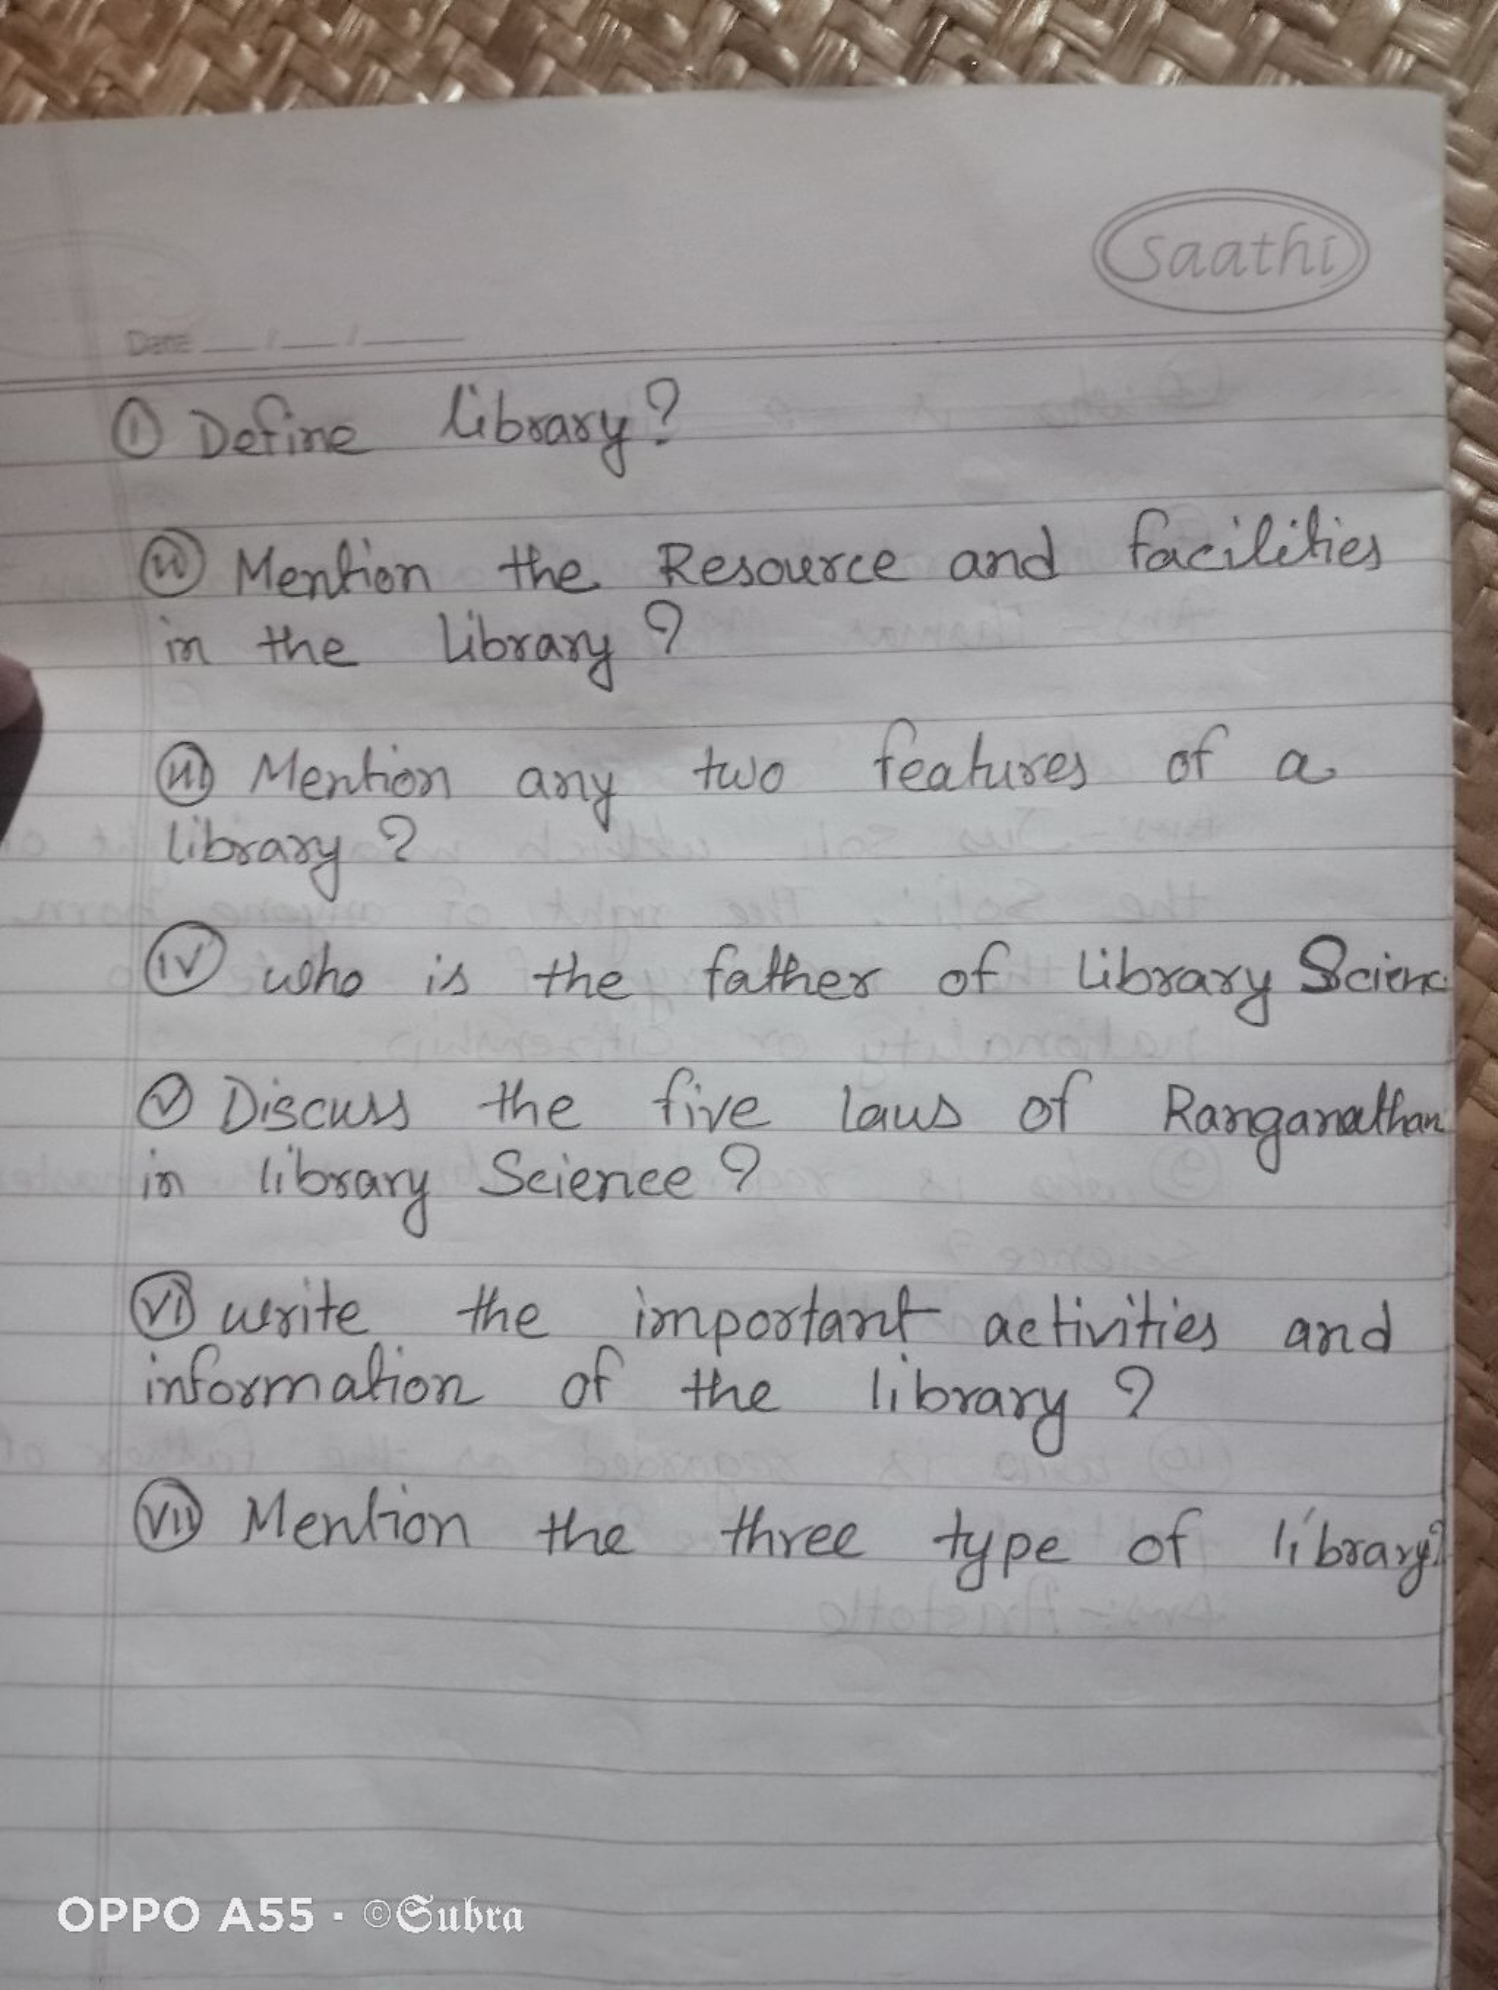 Saathi
Date __/__/____
(i) Define library?
(ii) Mention the Resource and facilities
in the library?
(iii) Mention any two features of a
library?
(iv) who is the father of library Scienc
(v) Discuss the five laws of Ranganathan
in library Science?
(vi) write the important activities and
information of the library?
(vii) Mention the three type of library?
OPPO A55 · ©Subra